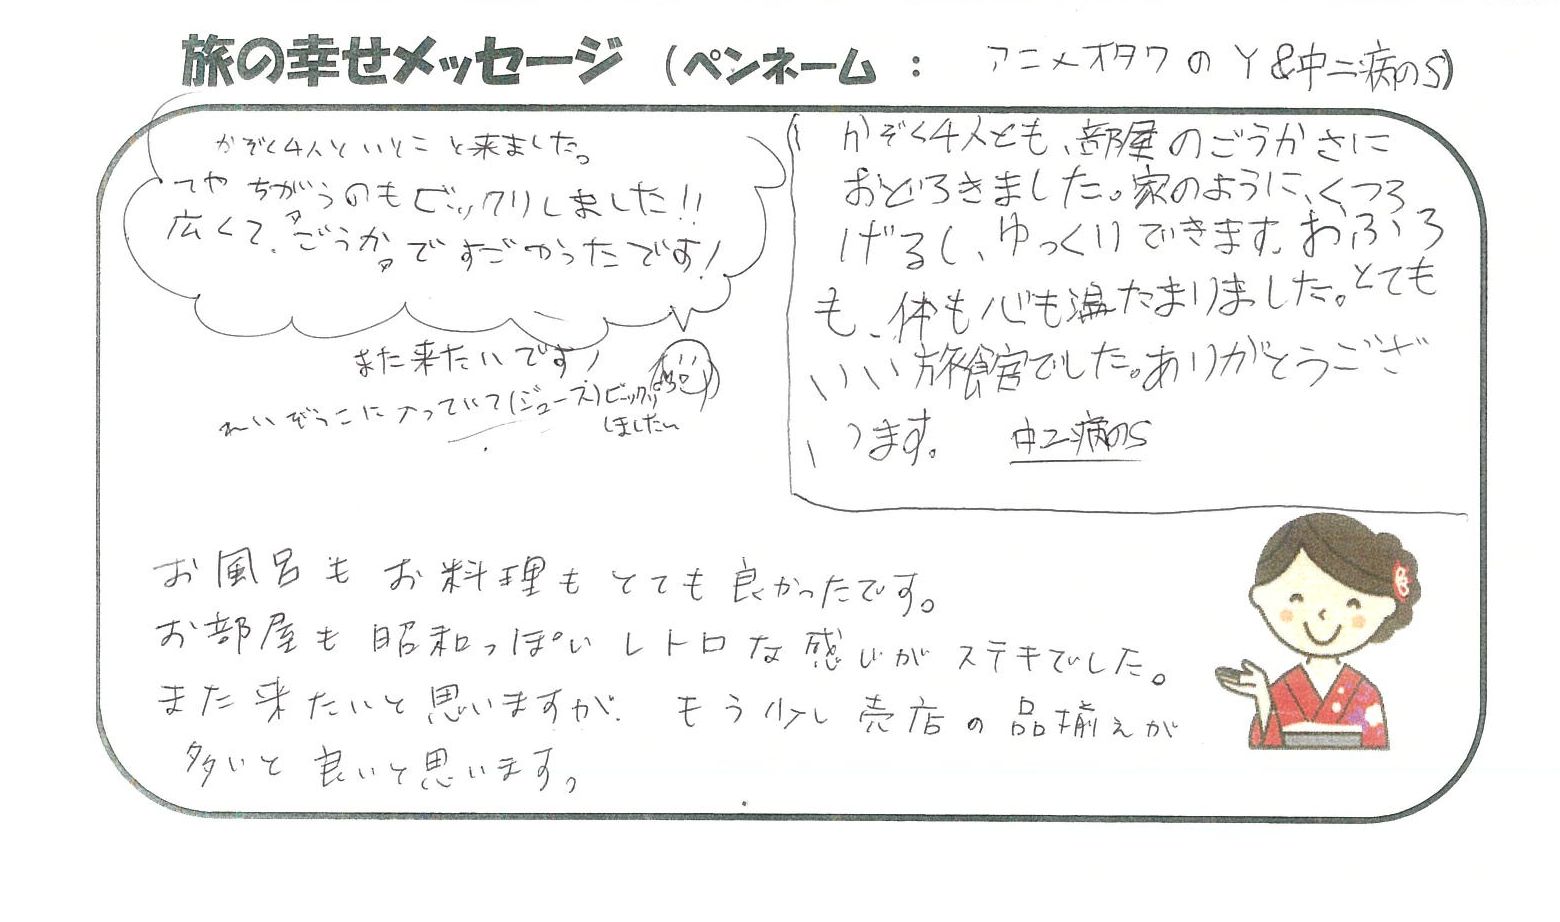 旅の幸せメッセージ (ペンネーム : アニメオタクのY&中二病のS)
かぞく4人といとこと来ました。
てやちがうのもビックリしました!!
広くて、ごうかですごかったです!
また来たいです!
れいぞうこに入っていて(ジュース)ビックリ
しました
かぞく4人とも、部屋のごうかさに
おどろきました。家のように、くつろ
げるし、ゆっくりできます。おふろ
も、体も心も温たまりました。とても
いい旅館でした。ありがとうござ
います。 中二病のS
お風呂もお料理もとても良かったです。
お部屋も昭和っぽいレトロな感じがステキでした。
また来たいと思いますが、もう少し売店の品揃えが
多いと良いと思います。